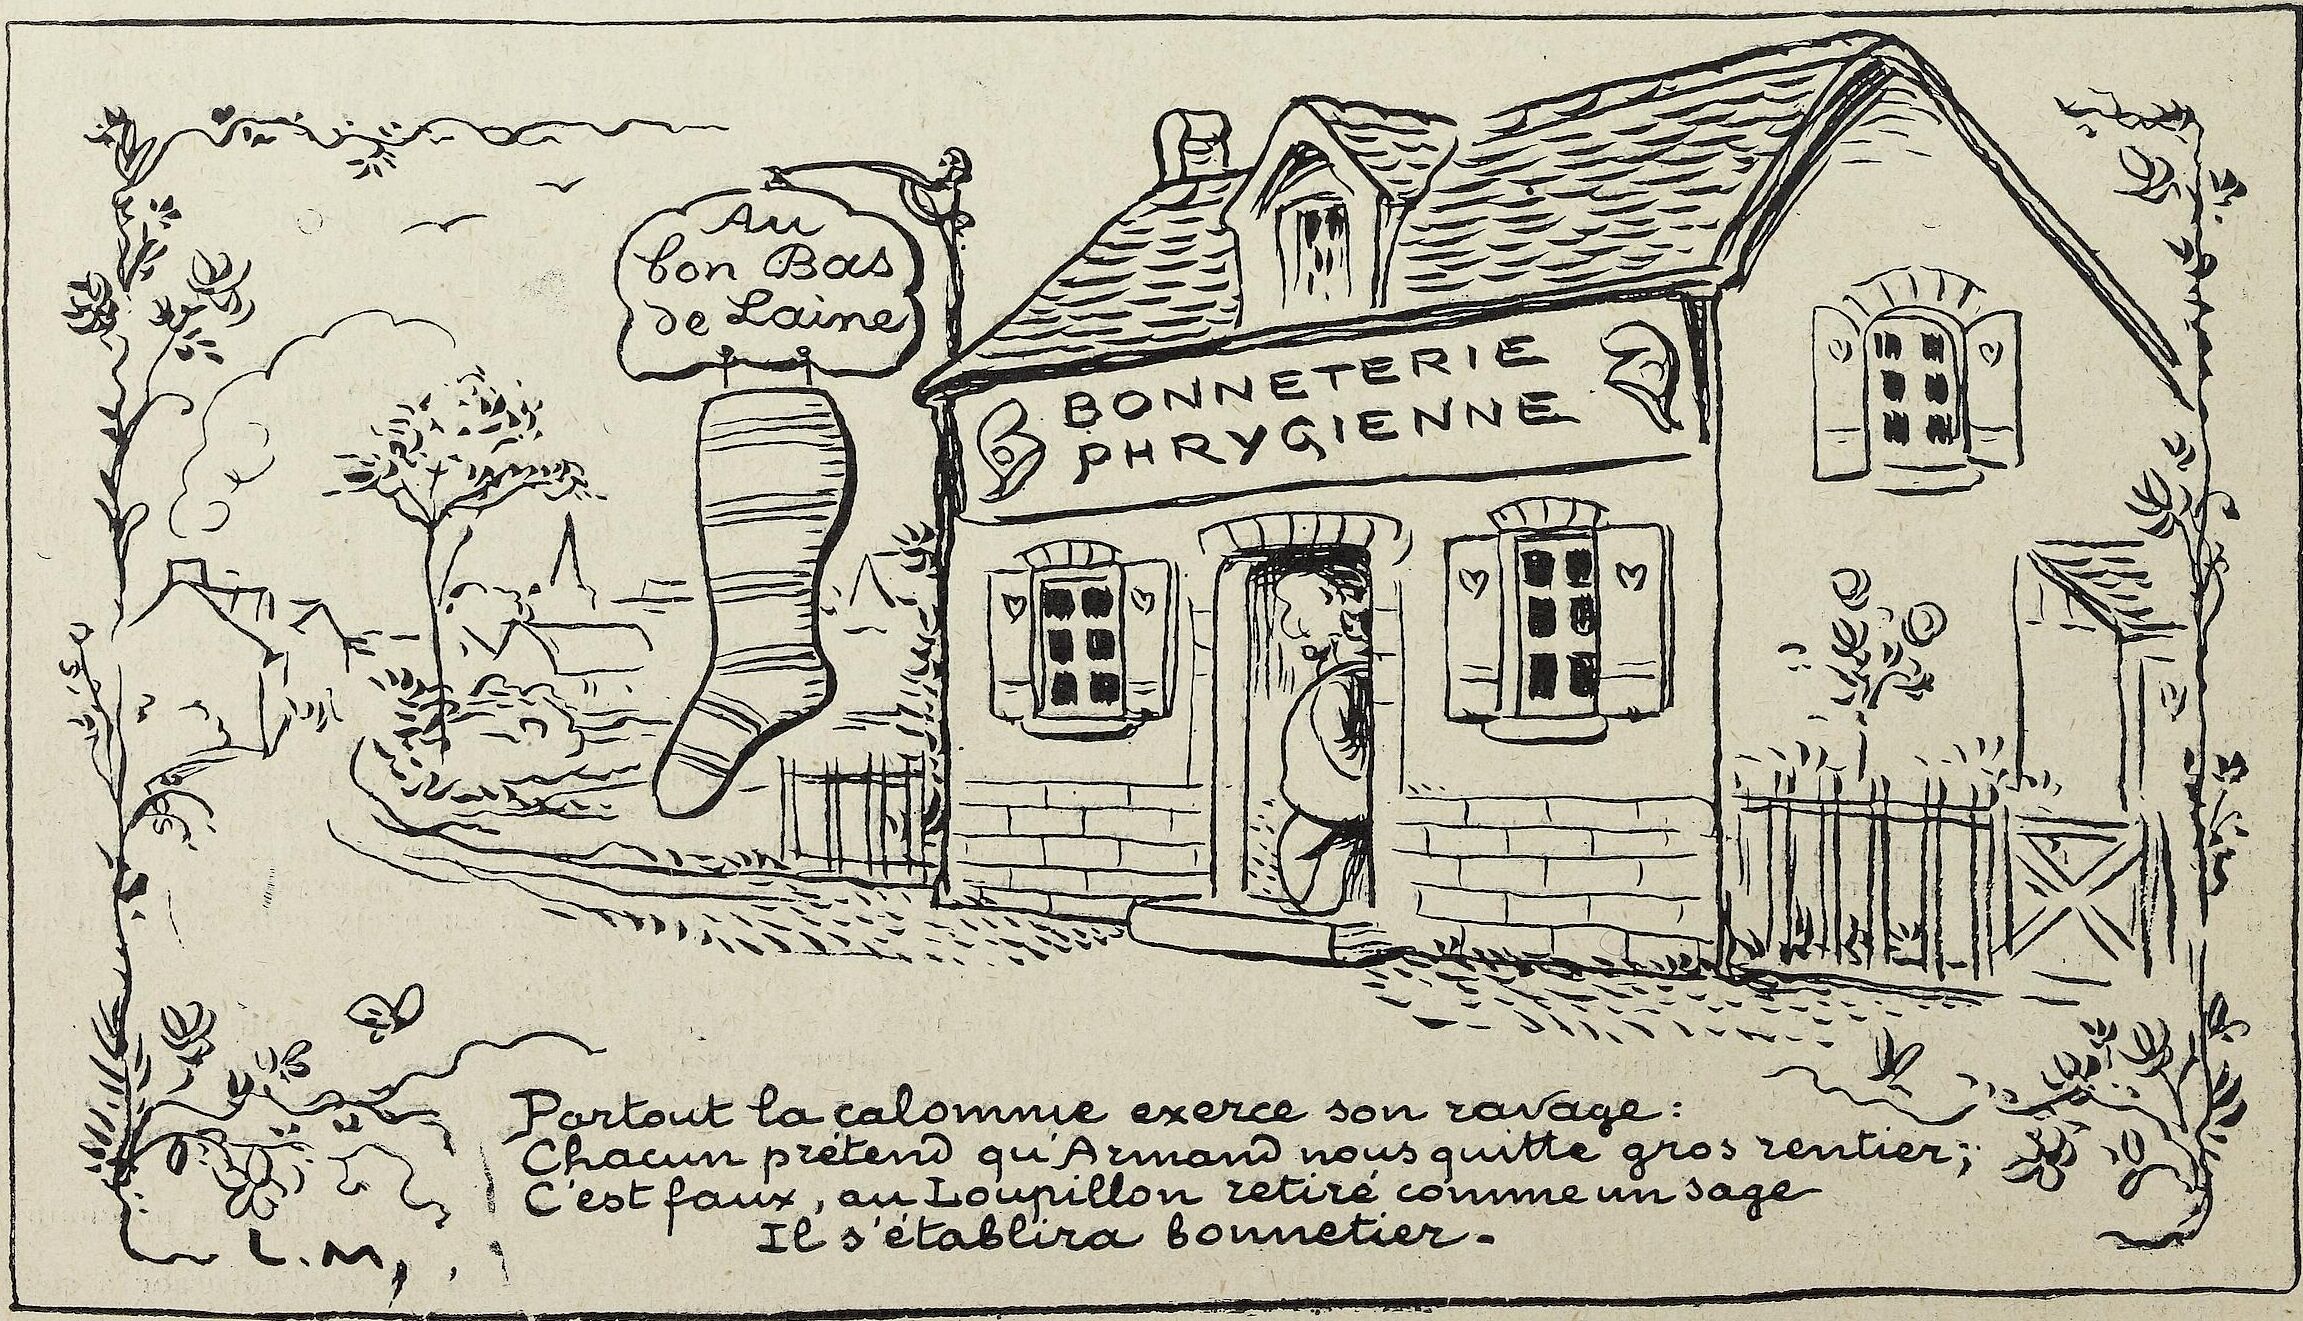 Au
bon Bas
de Laine
BONNETERIE
PHRYGIENNE
Partout la calomnie exerce son ravage :
Chacun prétend qu'Armand nous quitte gros rentier ;
C'est faux, au Loupillon retiré comme un sage
Il s'établira bonnetier.
L.M.